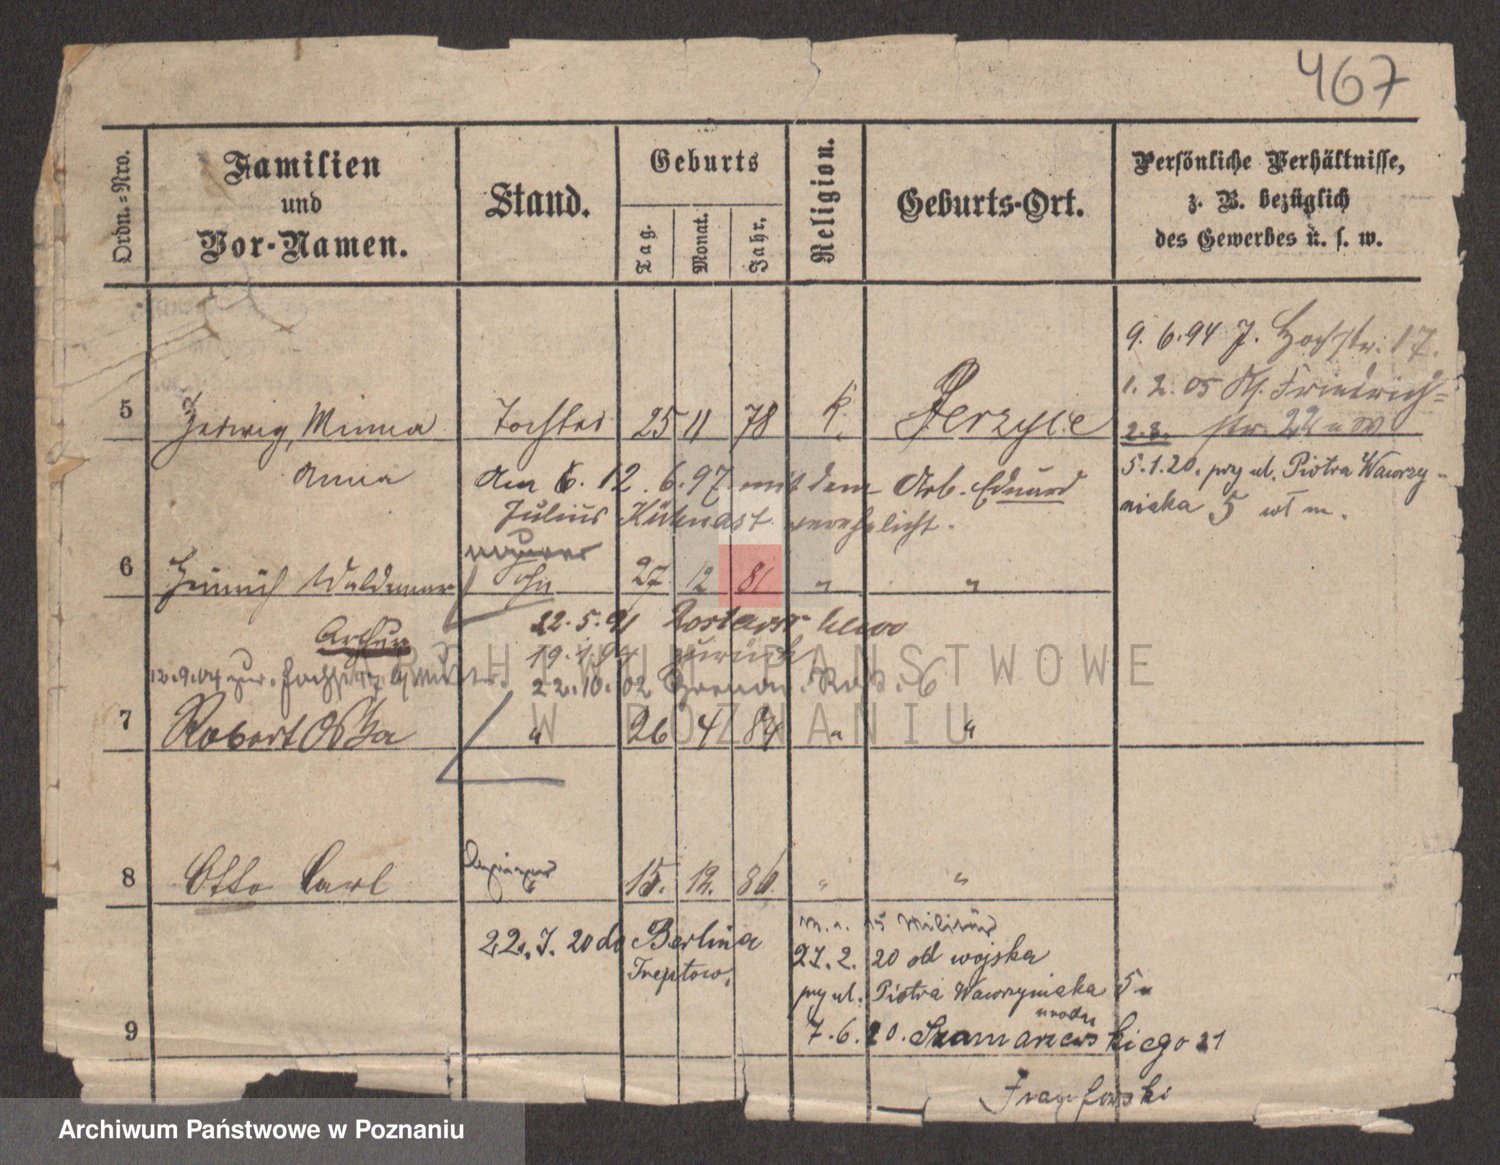 467
Ordn.=Nro.
Familien
und
Vor-Namen.
Stand.
Geburts
Tag.
Monat.
Jahr.
Religion.
Geburts-Ort.
Persönliche Verhältnisse,
z. B. bezüglich
des Gewerbes u. s. w.
9. 6. 94 J. Hochstr. 17.
1. 2. 05 Friedrich=
str. 22
5 Hedwig, Minna Tochter 25 11 78 k. Jerzyce
Anna
Am 12. 6. 97 mit dem Arb. Eduard
Julius Kühnast verehelicht.
5.1.20. przy ul. Piotra Wawrzy-
niaka 5 wł m.
6 Heinrich Waldemar Sohn 27 12 81 " "
Arthur
22. 5. 91
19. 1. 94 zurück
12. 9. 04 zur.
22. 10. 02
7 Robert Otto " 26 4 84 " "
8 Otto Carl 15. 12. 86 " "
22. I. 20 do Berlina
Treptow.
Militär
27. 2. 20 od wojska
przy ul. Piotra Wawrzyniaka 5
9
7. 6. 20. Szamarzewskiego 21
ARCHIWUM PAŃSTWOWE
W POZNANIU
Archiwum Państwowe w Poznaniu